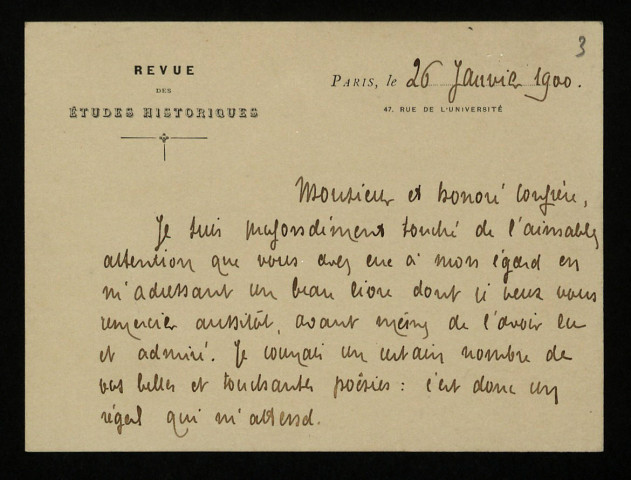 3
REVUE
DES
ÉTUDES HISTORIQUES
PARIS, le 26 Janvier 1900.
47, RUE DE L'UNIVERSITÉ
Monsieur et honoré confrère,
Je suis profondément touché de l'aimable
attention que vous avez eue à mon égard en
m'adressant un beau livre dont je veux vous
remercier aussitôt, avant même de l'avoir lu
et admiré. Je connais un certain nombre de
vos belles et touchantes poésies : c'est donc un
régal qui m'attend.